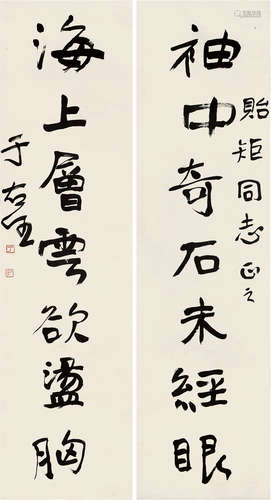 貽矩同志正之
袖中奇石未經眼
海上層雲欲盪胸
于右任